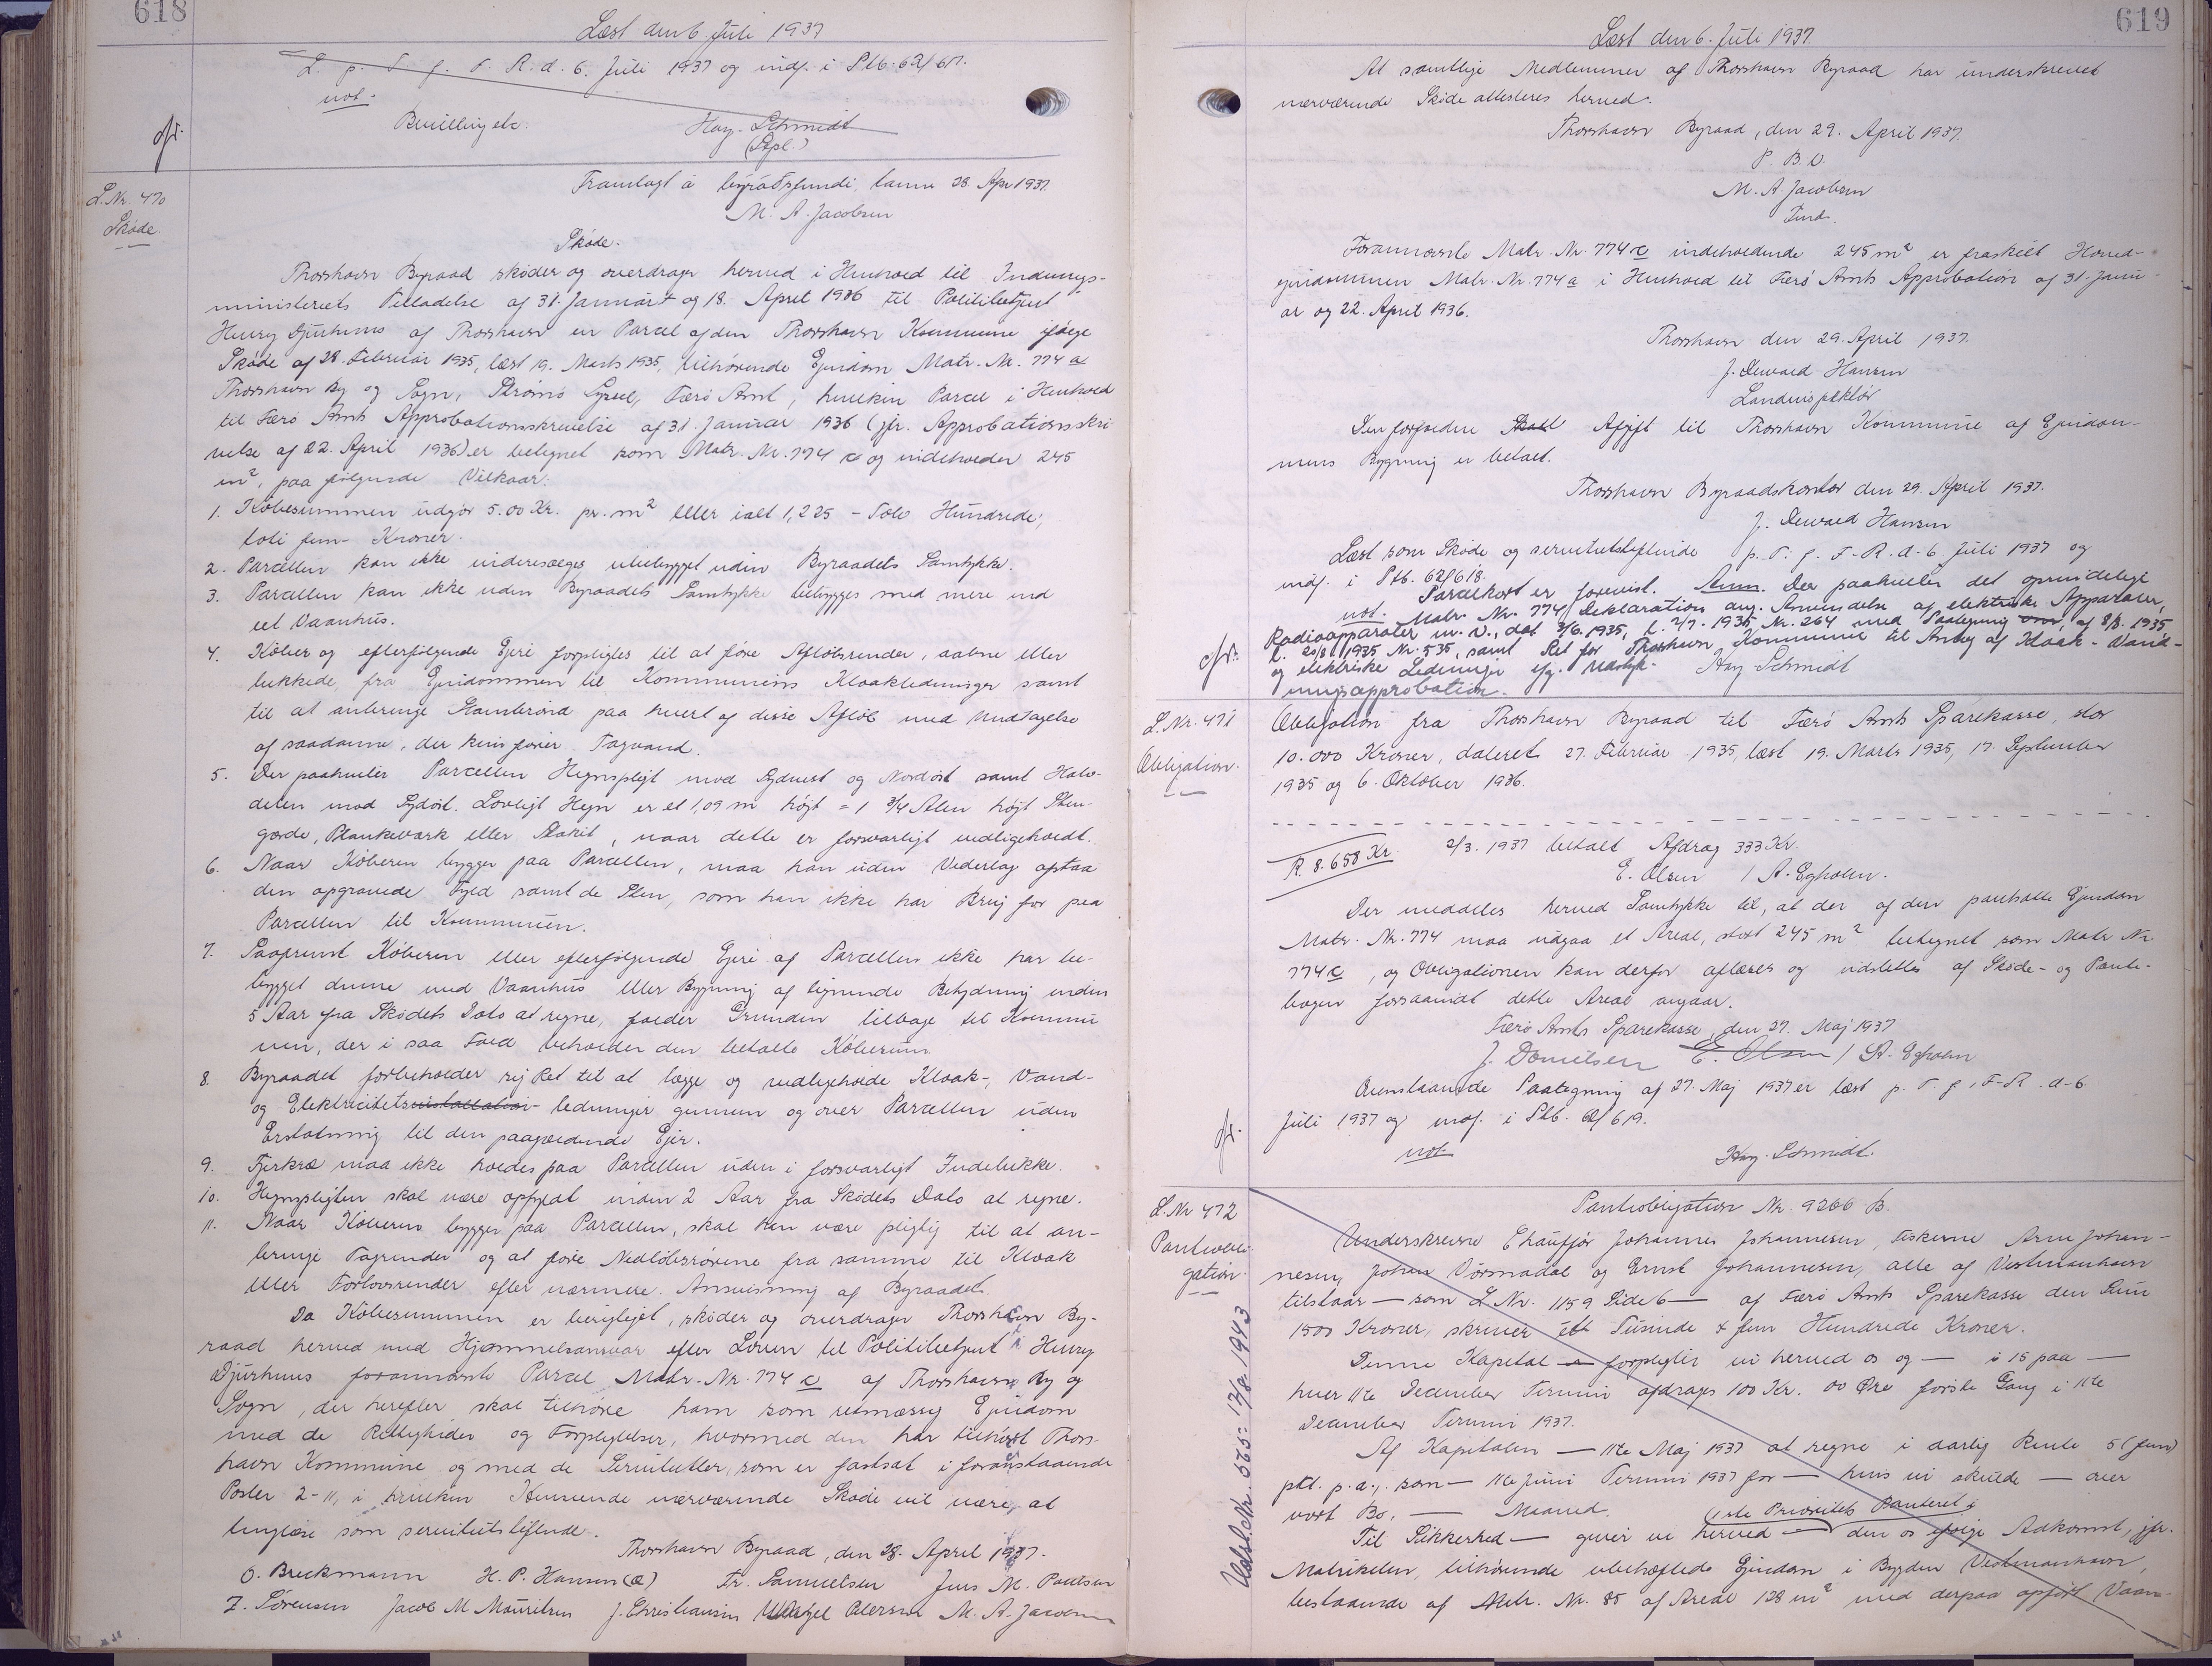 618
Læst den 6. Juli 1937
L. p. T. f. F. R. d. 6. Juli 1937 og indf. i Ptb. 62/617.
not.
Bevilling etc.
Hay. Schmidt
(Spl.)
cfr.
Framlagt á býráðsfundi, tann 28. Apr. 1937.
M. A. Jacobsen
L. Nr. 470
Skøde.
Skøde.
Thorshavn Byraad skøder og overdrager herved i Henhold til Indenrigs-
ministeriets Tilladelse af 31. Januar og 18. April 1936 til Politibetjent
Henry Djurhuus af Thorshavn en Parcel af den Thorshavn Kommune ifølge
Skøde af 28. Februar 1935, læst 19. Marts 1935, tilhørende Ejendom Matr. Nr. 774 a
Thorshavn By og Sogn, Strømø Syssel, Færø Amt, hvilken Parcel i Henhold
til Færø Amts Approbationsskrivelse af 31. Januar 1936 (jfr. Approbationsskri
velse af 22. April 1936) er betegnet som Matr. Nr. 774 c og indeholder 245
m², paa følgende Vilkaar:
1. Købesummen udgør 5.00 Kr. pr. m² eller ialt 1,225 - Tolv Hundrede,
toti fem - Kroner.
2. Parcellen kan ikke videresælges ubebygget uden Byraadets Samtykke.
3. Parcellen kan ikke uden Byraadets Samtykke bebygges med mere end
eet Vaanhus.
4. Køber og efterfølgende Ejere forpligtes til at føre Afløbsrender, aabne eller
lukkede, fra Ejendommen til Kommunens Kloakledninger samt
til at anbringe Slambrønd paa hvert af disse Afløb med Undtagelse
af saadanne, der kun fører Tagvand.
5. Der paahviler Parcellen Hegnspligt mod Sydvest og Nordøst samt Halv-
delen mod Sydøst. Lovligt Hegn er et 1,09 m højt = 1 3/4 Alen højt Sten-
gærde, Plankeværk eller Stakit, naar dette er forsvarligt vedligeholdt.
6. Naar Køberen bygger paa Parcellen, maa han uden Vederlag optaa
den opgravede Fyld samt de Sten, som han ikke har Brug for paa
Parcellen til Kommunen.
7. Saafremt Køberen eller efterfølgende Ejere af Parcellen ikke har be-
bygget denne med Vaanhus eller Bygning af lignende Betydning inden
5 Aar fra Skødets Dato at regne, falder Grunden tilbage til Kommu
nen, der i saa Fald beholder den betalte Købesum.
8. Byraadet forbeholder sig Ret til at lægge og vedligeholde Kloak-, Vand-
og Elektricitetsinstallation- ledninger gennem og over Parcellen uden
Erstatning til den paagældende Ejer.
9. Fjerkræ maa ikke holdes paa Parcellen uden i forsvarligt Indelukke.
10. Hegnspligten skal være opfyldt inden 2 Aar fra Skødets Dato at regne.
11. Naar Køberen bygger paa Parcellen, skal han være pligtig til at an-
bringe Tagrender og at føre Nedløbsrørene fra samme til Kloak
eller Fortovsrender efter nærmere Anvisning af Byraadet.
Da Købesummen er berigtiget, skøder og overdrager Thorshavn By-
raad herved med Hjemmelsansvar efter Loven til Politibetjent Henry
Djurhuus forannævnte Parcel Matr. Nr. 774 c af Thorshavns By og
Sogn, der herefter skal tilhøre ham som retmæssig Ejendom
med de Rettigheder og Forpligtelser, hvormed den har tilhørt Thors-
havn Kommune og med de Servitutter, som er fastsat i foranstaaende
Poster 2-11, i hvilken Henseende nærværende Skøde vil være at
tinglæse som servitutstiftende.
Thorshavn Byraad, den 28. April 1937.
O. Breckmann H. P. Hansen (Æ) Fr. Samuelsen Jens M. Poulsen
Z. Sørensen Jacob M Mouritsen J. Christiansen Petersen M. A. Jacobsen
619
Læst den 6. Juli 1937.
At samtlige Medlemmer af Thorshavn Byraad har underskrevet
nærværende Skøde attesteres herved.
Thorshavn Byraad, den 29. April 1937.
P. B. V.
M. A. Jacobsen
Fmd.
Forannævnte Matr. Nr. 774 c indeholdende 245 m² er fraskilt Hoved-
ejendommen Matr. Nr. 774 a i Henhold til Færø Amts Approbation af 31. Janu-
ar og 22. April 1936.
Thorshavn den 29. April 1937.
J. Dewald Hansen
Landinspektør
Den forfaldne Skatt Afgift til Thorshavn Kommune af Ejendom-
mens Bygning er betalt.
Thorshavn Byraadskontor den 29. April 1937.
J. Dewald Hansen
Læst som Skøde og servitutstiftende p. T. f. F.-R. d. 6. Juli 1937 og
indf. i Ptb. 62/618.
Parcelkort er forevist. Anm. Der paahviler det oprindelige
not. Matr. Nr. 774 Deklaration ang. Anvendelse af elektriske Apparater,
Radioapparater m. v., dat. 3/6. 1935, l. 2/7. 1935 Nr. 264 med Paategning om, af 8/8. 1935
l. 20/8 1935 Nr. 535, samt Ret for Thorshavn Kommune til Anlæg af Kloak- Vand-
og elektriske Ledninger ifg. Udstyk-
ningsapprobation.
Hay Schmidt
cfr.
L. Nr. 471
Obligation.
Obligation fra Thorshavn Byraad til Færø Amts Sparekasse, stor
10.000 Kroner, dateret 27. Februar 1935, læst 19. Marts 1935, 17. September
1935 og 6. Oktober 1936.
R. 8.658 Kr. 2/3. 1937 betalt Afdrag 333 Kr.
E. Olsen / A. Egholm.
Der meddeles herved Samtykke til, at der af den pantsatte Ejendom
Matr. Nr. 774 maa udgaa et Areal, stort 245 m² betegnet som Matr Nr.
774 c, og Obligationen kan derfor aflæses og udslettes af Skøde- og Pante-
bogen forsaavidt dette Areal angaar.
Færø Amts Sparekasse, den 27. Maj 1937
J. Danielsen E. Olsen / A. Egholm
Ovenstaaende Paategning af 27. Maj 1937 er læst p. T. f. F-R. d. 6
Juli 1937 og indf. i Ptb. 62/619.
not
Hay. Schmidt.
cfr.
L. Nr 472
Panteobli-
gation.
Udsl. d. Nr. 565: 13/8 1943
Panteobligation Nr. 9266 B.
Underskrevne Chauffør Johannes Johannesen, Fiskerne Arne Johan-
nesen, Johan Vørmadal og Ernst Johannesen, alle af Vestmanhavn
tilstaar — som L Nr. 1159 Side 6 — af Færø Amts Sparekasse den Sum
1500 Kroner, skriver ett Tusinde & fem Hundrede Kroner.
Denne Kapital forpligter vi herved os og — i 15 paa —
hver 11te December Termin afdrages 100 Kr. 00 Øre første Gang i 11te
December Termin 1937.
Af Kapitalen — 11te Maj 1937 at regne i aarlig Rente 5 (fem)
pct. p. a., som — 11te Juni Termin 1937 for — hvis vi skulde — over
vort Bo, — Maaned.
Til Sikkerhed — giver vi herved — 1ste Prioritets Panteret i den os ifølge Adkomst, jfr.
Matrikelen, tilhørende ubehæftede Ejendom i Bygden Vestmanhavn,
bestaaende af Matr. Nr. 85 af Areal 128 m² med derpaa opført Vaan-